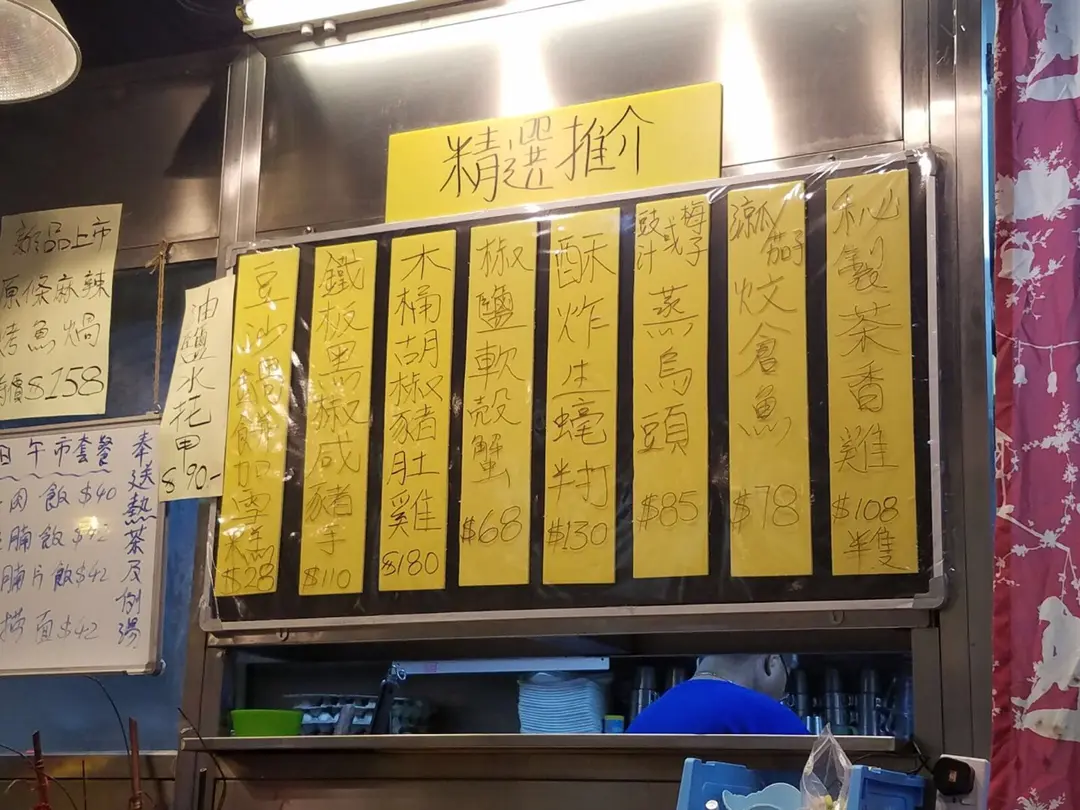 精選推介
秘製茶香雞 $108 半隻
涼瓜茄子炆倉魚 $78
豉汁或梅子蒸烏頭 $85
酥炸生蠔半打 $130
椒鹽軟殼蟹 $68
木桶胡椒豬肚雞 $180
鐵板黑椒咸豬手 $110
豆沙鍋餅加雪糕 $28
油鹽水 $90-
新品上市
原條麻辣
烤魚焗
$158
午市套餐
肉飯 $40
腩飯 $42
腩片飯 $42
撈面 $42
奉送熱茶及例湯